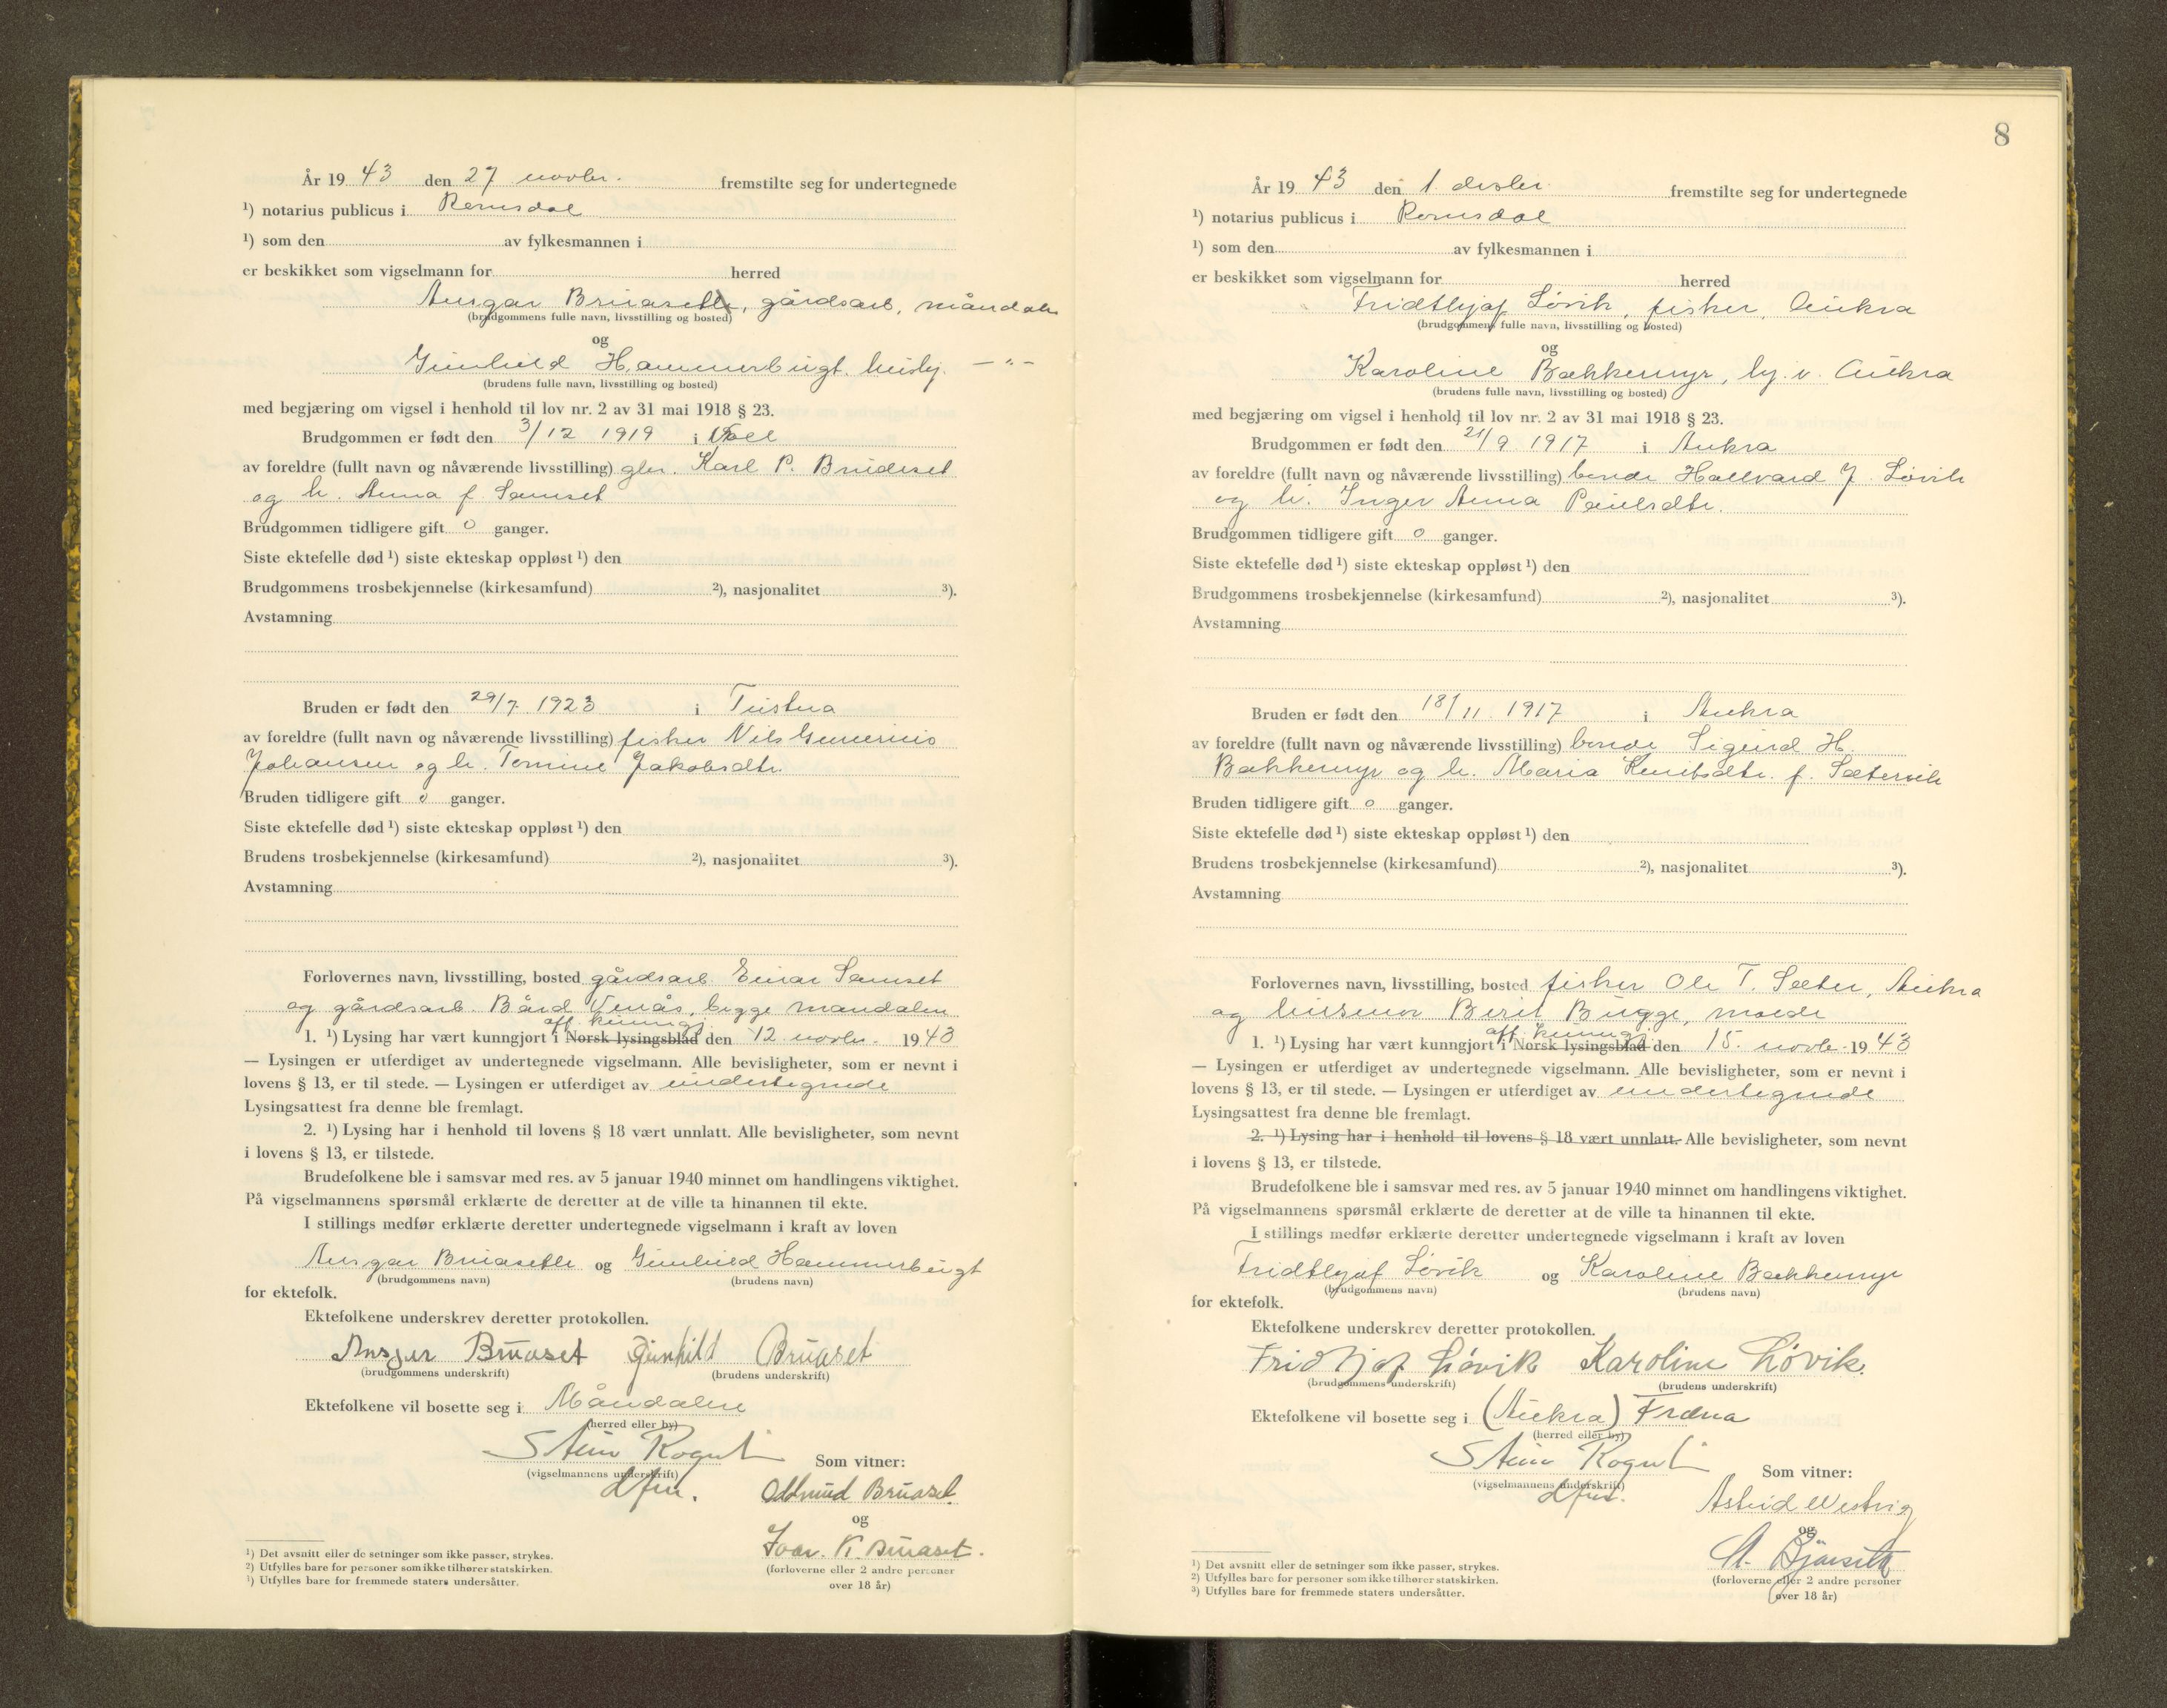 År 19 43 den 27 novbr. fremstilte seg for undertegnede
¹) notarius publicus i Romsdal
¹) som den av fylkesmannen i
er beskikket som vigselmann for herred
Ansgar Bruasette, gårdsarb, måndalen
(brudgommens fulle navn, livsstilling og bosted)
og
Gunhild Hammerbugt. husbj. — " —
(brudens fulle navn, livsstilling og bosted)
med begjæring om vigsel i henhold til lov nr. 2 av 31 mai 1918 § 23.
Brudgommen er født den 3/12 1919 i Voll
av foreldre (fullt navn og nåværende livsstilling) gbr. Karl P. Brudeset
og h. Anna f. Samset
Brudgommen tidligere gift 0 ganger.
Siste ektefelle død ¹) siste ekteskap oppløst ¹) den
Brudgommens trosbekjennelse (kirkesamfund) ²), nasjonalitet ³).
Avstamning
Bruden er født den 29/7 1923 i Tustna
av foreldre (fullt navn og nåværende livsstilling) fisker Nils
Johansen og h. Tomine Jakobsdtr.
Bruden tidligere gift 0 ganger.
Siste ektefelle død ¹) siste ekteskap oppløst ¹) den
Brudens trosbekjennelse (kirkesamfund) ²), nasjonalitet ³).
Avstamning
Forlovernes navn, livsstilling, bosted gårdsarb Einar Samset
og gårdsarb. Bård Venås, begge mandalen
off. kunng.
1. ¹) Lysing har vært kunngjort i Norsk lysingsblad den 12 novbr. 1943
— Lysingen er utferdiget av undertegnede vigselmann. Alle bevisligheter, som er nevnt i
lovens § 13, er til stede. — Lysingen er utferdiget av undertegnede
Lysingsattest fra denne ble fremlagt.
2. ¹) Lysing har i henhold til lovens § 18 vært unnlatt. Alle bevisligheter, som nevnt
i lovens § 13, er tilstede.
Brudefolkene ble i samsvar med res. av 5 januar 1940 minnet om handlingens viktighet.
På vigselmannens spørsmål erklærte de deretter at de ville ta hinannen til ekte.
I stillings medfør erklærte deretter undertegnede vigselmann i kraft av loven
Ansgar Bruasette og Gunhild Hammerbugt
(brudgommens navn) (brudens navn)
for ektefolk.
Ektefolkene underskrev deretter protokollen.
Ansgar Bruaset Gunhild Bruaset
(brudgommens underskrift) (brudens underskrift)
Ektefolkene vil bosette seg i Måndalen
(herred eller by)
(vigselmannens underskrift)
Som vitner:
Oddmund Bruaset.
og
Ivar. K. Bruaset.
(forloverne eller 2 andre personer
over 18 år)
¹) Det avsnitt eller de setninger som ikke passer, strykes.
²) Utfylles bare for personer som ikke tilhører statskirken.
³) Utfylles bare for fremmede staters undersåtter.
8
År 19 43 den 1. desbr. fremstilte seg for undertegnede
¹) notarius publicus i Romsdal
¹) som den av fylkesmannen i
er beskikket som vigselmann for herred
Fridthjof Løvik, fisker, Aukra
(brudgommens fulle navn, livsstilling og bosted)
og
Karoline Bækkemyr, hj. v. Aukra
(brudens fulle navn, livsstilling og bosted)
med begjæring om vigsel i henhold til lov nr. 2 av 31 mai 1918 § 23.
Brudgommen er født den 21/9 1917 i Aukra
av foreldre (fullt navn og nåværende livsstilling) bonde Hallvard J. Løvik
og h. Inger Anna Paulsdtr.
Brudgommen tidligere gift 0 ganger.
Siste ektefelle død ¹) siste ekteskap oppløst ¹) den
Brudgommens trosbekjennelse (kirkesamfund) ²), nasjonalitet ³).
Avstamning
Bruden er født den 18/11. 1917 i Aukra
av foreldre (fullt navn og nåværende livsstilling) bonde Sigurd H.
Bækkemyr og h. Maria Knutsdtr. f. Sætervik
Bruden tidligere gift 0 ganger.
Siste ektefelle død ¹) siste ekteskap oppløst ¹) den
Brudens trosbekjennelse (kirkesamfund) ²), nasjonalitet ³).
Avstamning
Forlovernes navn, livsstilling, bosted fisker Ole T. Sæter, Aukra
og husmor Berit Bugge, molde
off. kunng.
1. ¹) Lysing har vært kunngjort i Norsk lysingsblad den 15. novbr. 1943
— Lysingen er utferdiget av undertegnede vigselmann. Alle bevisligheter, som er nevnt i
lovens § 13, er til stede. — Lysingen er utferdiget av undertegnede
Lysingsattest fra denne ble fremlagt.
2. ¹) Lysing har i henhold til lovens § 18 vært unnlatt. Alle bevisligheter, som nevnt
i lovens § 13, er tilstede.
Brudefolkene ble i samsvar med res. av 5 januar 1940 minnet om handlingens viktighet.
På vigselmannens spørsmål erklærte de deretter at de ville ta hinannen til ekte.
I stillings medfør erklærte deretter undertegnede vigselmann i kraft av loven
Fridthjof Løvik og Karoline Bækkemyr
(brudgommens navn) (brudens navn)
for ektefolk.
Ektefolkene underskrev deretter protokollen.
Fridtjof Løvik Karoline Løvik.
(brudgommens underskrift) (brudens underskrift)
Ektefolkene vil bosette seg i (Aukra) Fræna
(herred eller by)
(vigselmannens underskrift)
Som vitner:
Astrid Westvig
og
(forloverne eller 2 andre personer
over 18 år)
¹) Det avsnitt eller de setninger som ikke passer, strykes.
²) Utfylles bare for personer som ikke tilhører statskirken.
³) Utfylles bare for fremmede staters undersåtter.